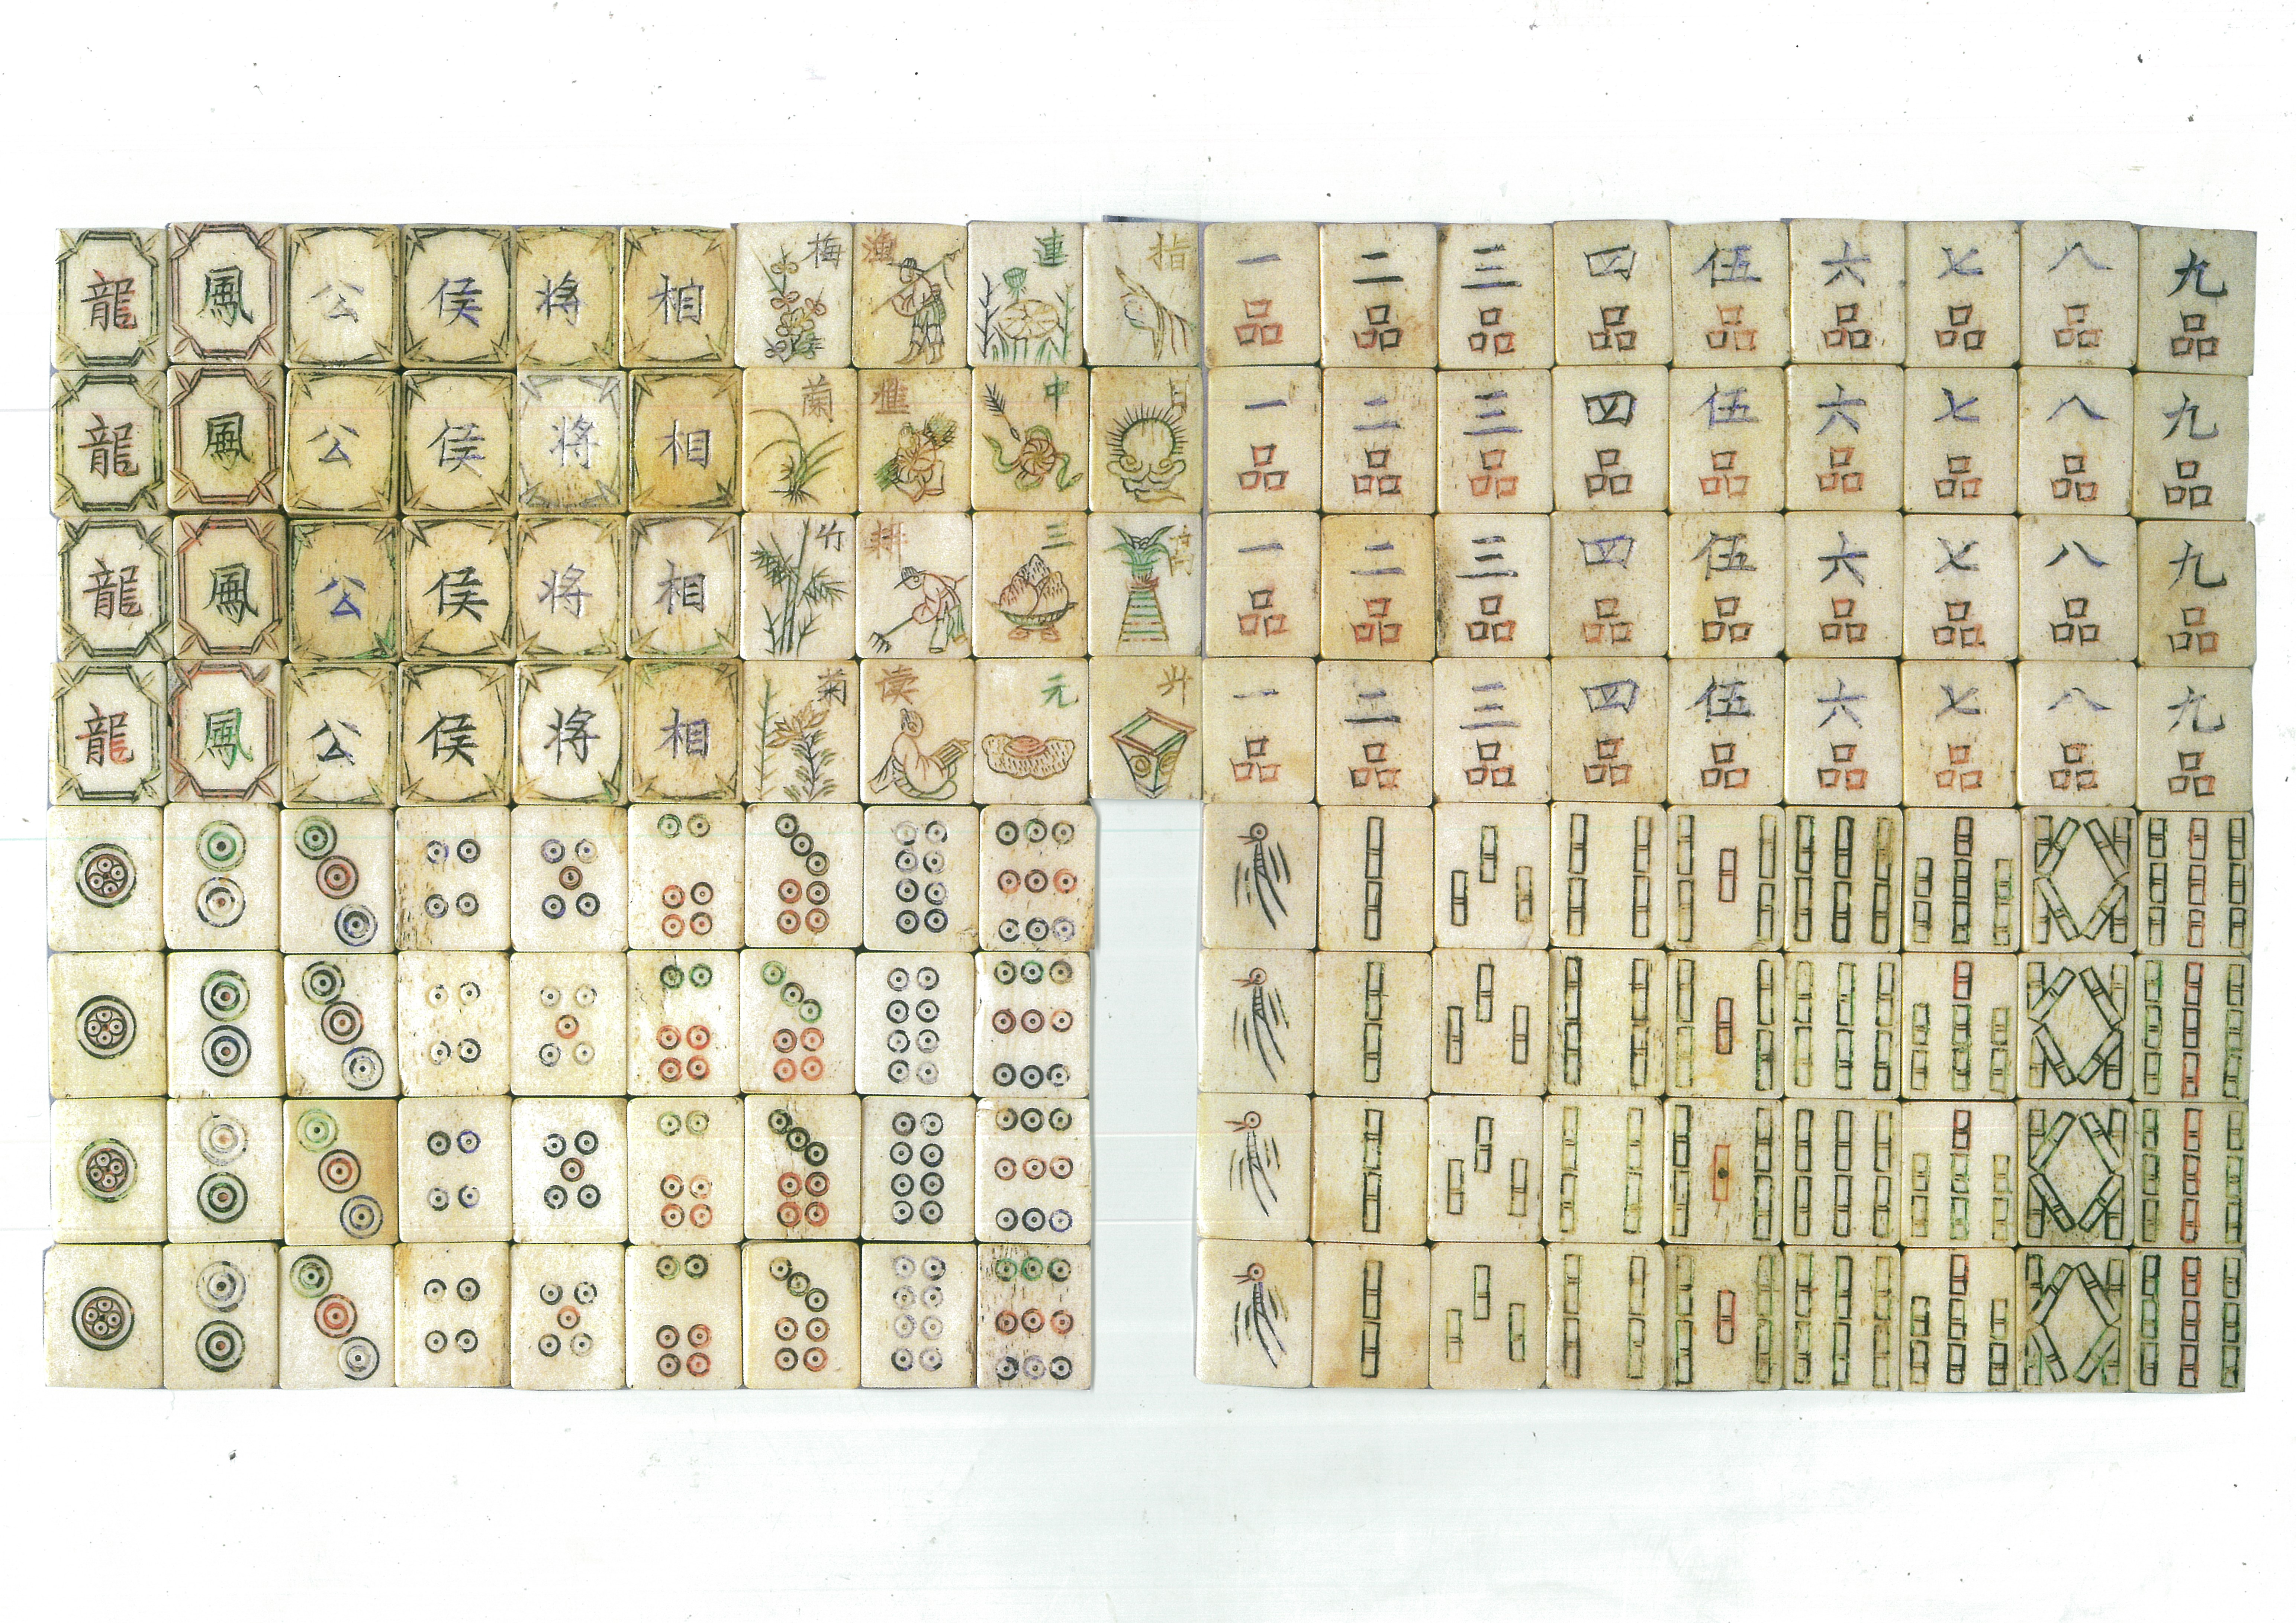 龍 鳳 公 侯 将 相 梅 漁 連 指 一 二 三 四 伍 六 七 八 九
品 品 品 品 品 品 品 品 品
龍 鳳 公 侯 将 相 蘭 樵 中 一 二 三 四 伍 六 七 八 九
品 品 品 品 品 品 品 品 品
龍 鳳 公 侯 将 相 竹 耕 三 一 二 三 四 伍 六 七 八 九
品 品 品 品 品 品 品 品 品
龍 鳳 公 侯 将 相 菊 读 元 升 一 二 三 四 伍 六 七 八 九
品 品 品 品 品 品 品 品 品